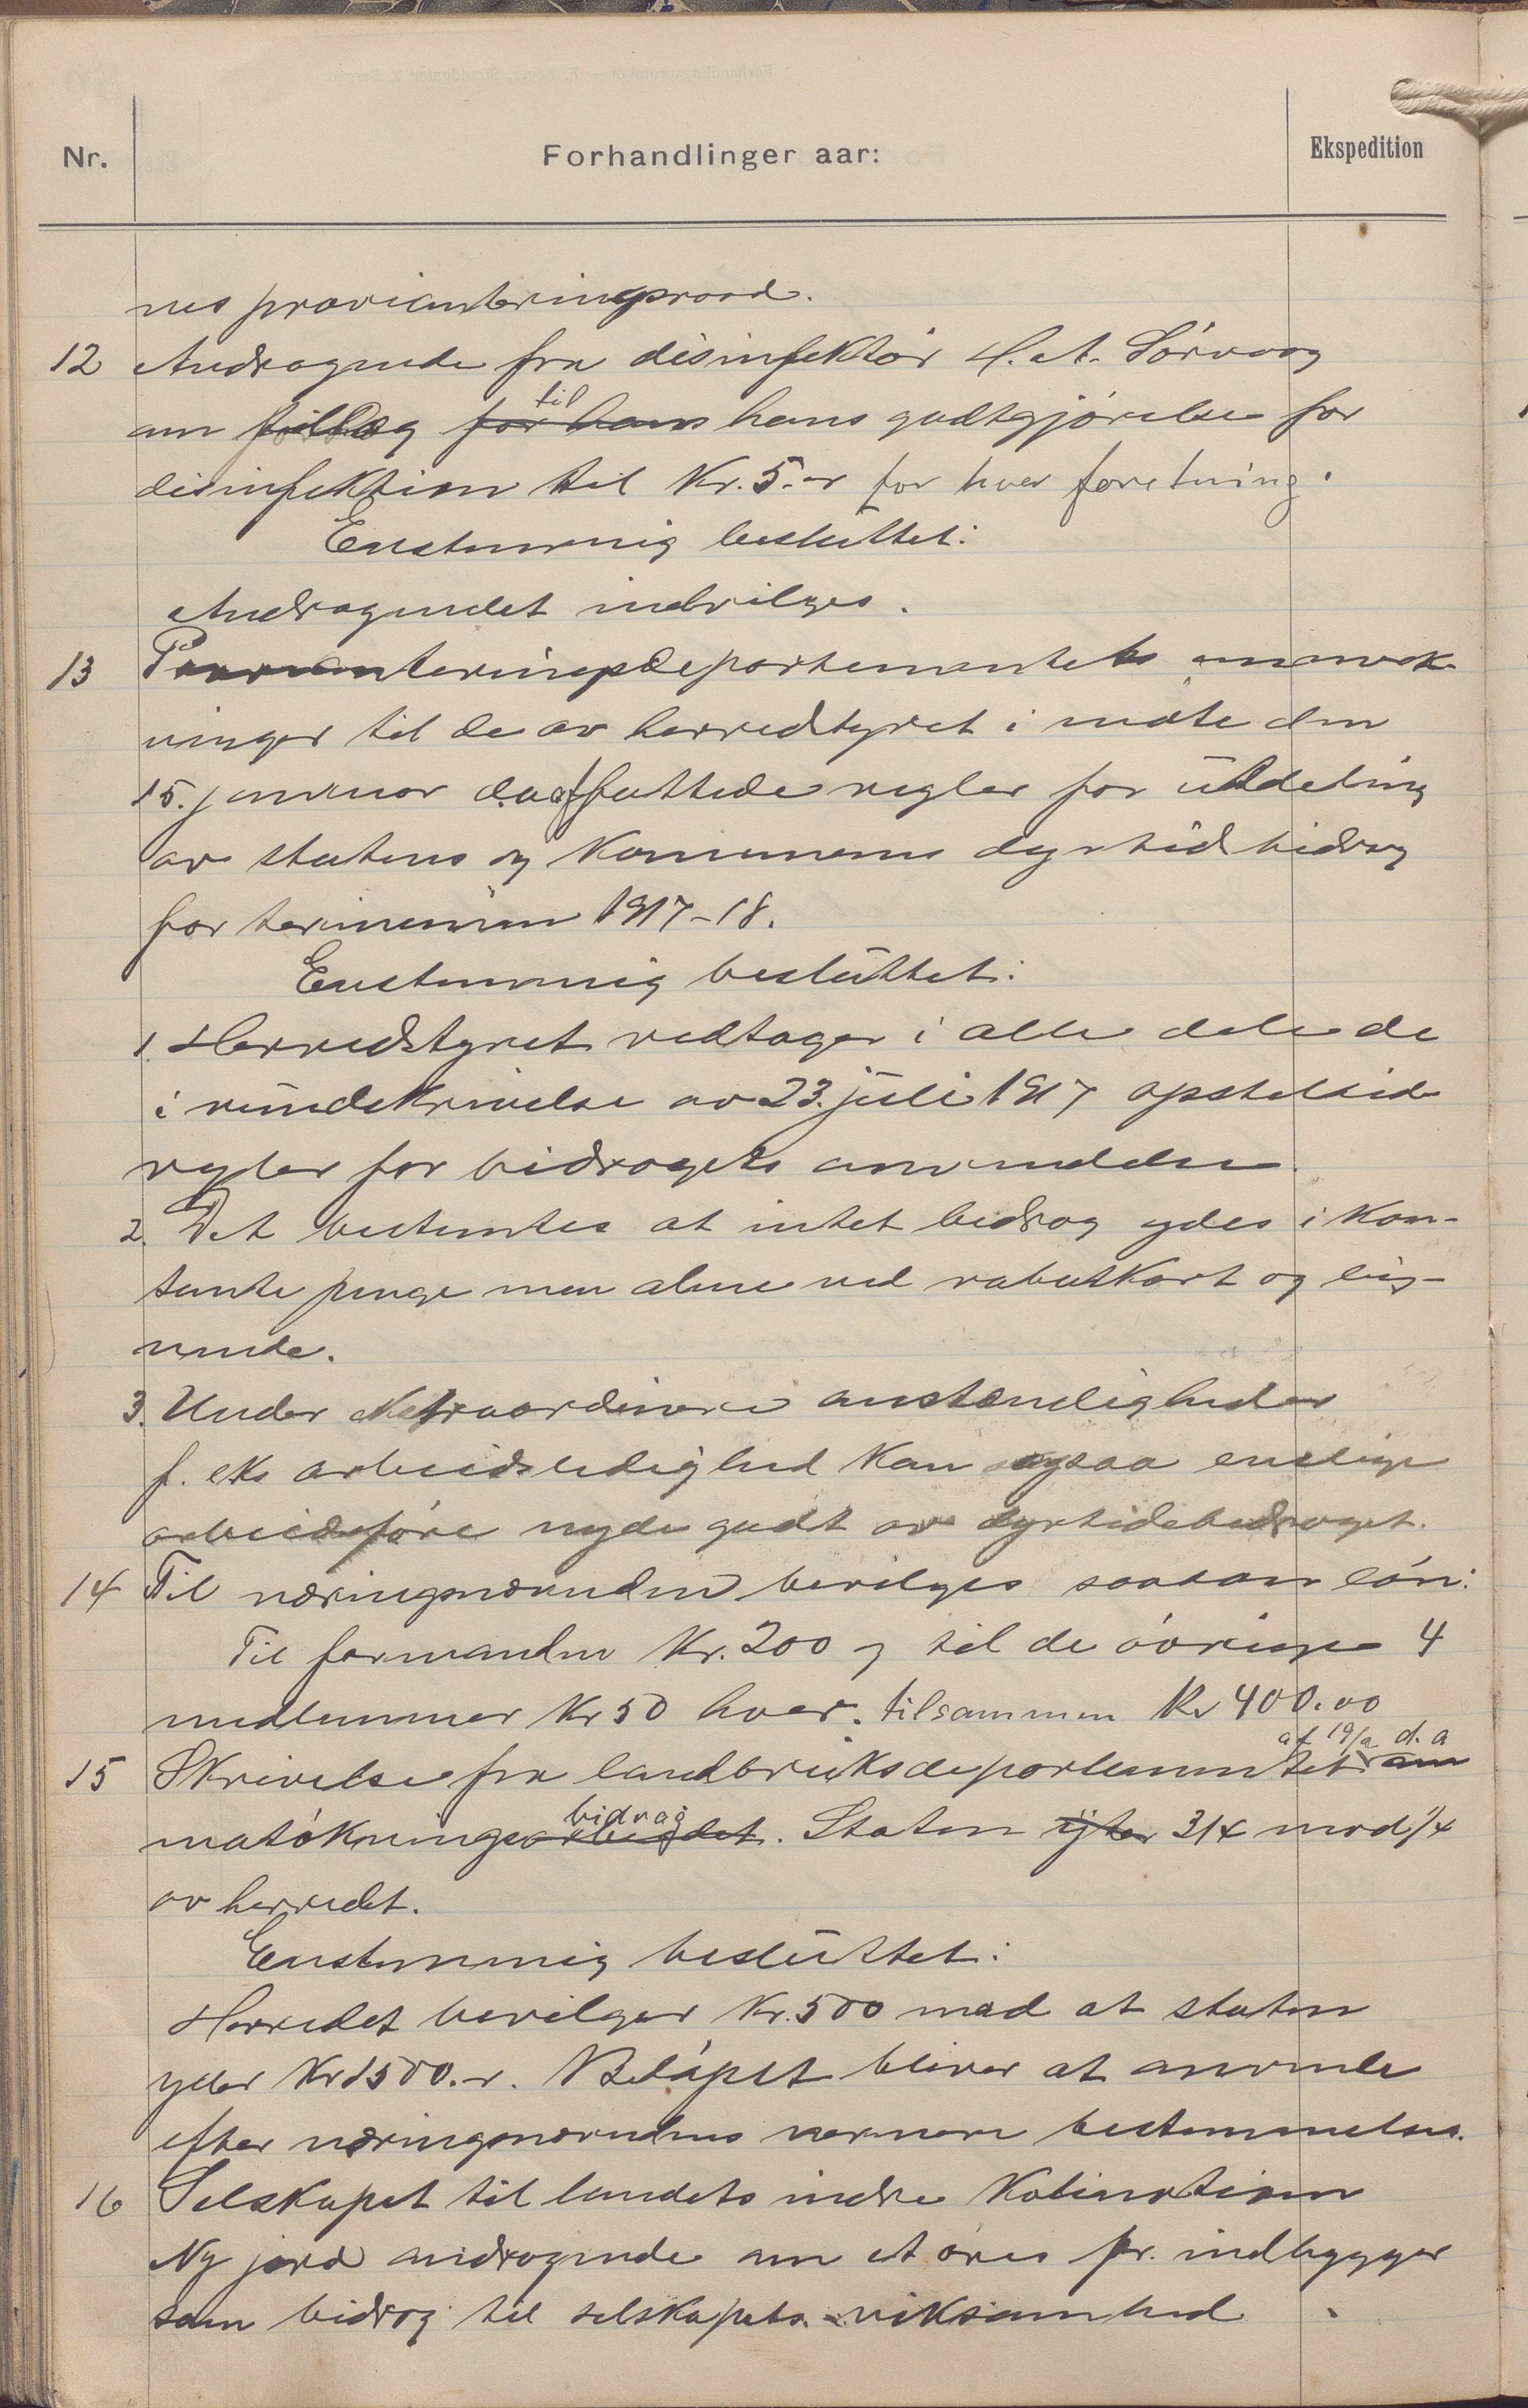 Nr.
Forhandlinger aar:
Ekspedition
nes provianteringsraad.
12 Andragende fra disinfektør H. A. Sørvaag
om tillæg for hans til hans godtgjørelse for
disinfektion til Kr. 5.- for hver foretning.
Enstemmig besluttet:
Andragendet indvilges.
13 Provianteringsdepartementets anmerk-
ninger til de av herredstyret i møte den
15. januar d.a. affattede regler for utdeling
av statens og kommunens dyrtidsbidrag
for terminen 1917-18.
Enstemmig besluttet:
1. Herredstyret vedtager i alle dele de
i rundskrivelse av 23. juli 1917 opstellede
regler for bidragets anvendelse.
2. Det bestemtes at intet bidrag ydes i kon-
tante penge men alene ved rabatkort og lig-
nende.
3. Under ekstraordinære omstændigheder
f. eks arbeidsledighed kan ogsaa enslige
arbeidsføre nyde godt av dyrtidsbidraget.
14 Til næringsnevnden bevilges saadan løn:
Til formanden Kr. 200 og til de øvrige 4
medlemmer Kr 50 hver. tilsammen Kr 400.00
15 Skrivelse fra landbruksdepartementet af 19/2 d. a om
matøkningsarbeidet bidrag. Staten yter 3/4 mod 1/4
av herredet.
Enstemmig besluttet:
Herredet bevilger Kr. 500 mod at staten
yder Kr 1500.-. Beløpet bliver at anvende
efter næringsnevndens nærmere bestemmelse.
16 Selskapet til landets indre kolonisation
Ny jord andragende om et øres pr. indbygger
som bidrag til selskapets virksamhed.